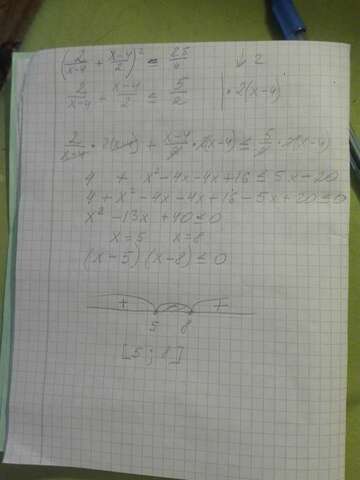 (2/(x-4) + (x-4)/2)² ≤ 25/4 | ↓ 2
2/(x-4) + (x-4)/2 ≤ 5/2 | · 2(x-4)
2/(x-4) · 2(x-4) + (x-4)/2 · 2(x-4) ≤ 5/2 · 2(x-4)
4 + x²-4x-4x+16 ≤ 5x-20
4+x²-4x-4x+16-5x+20≤0
x²-13x+40≤0
x=5 x=8
(x-5)(x-8)≤0
+ - +
5 8
[5;8]